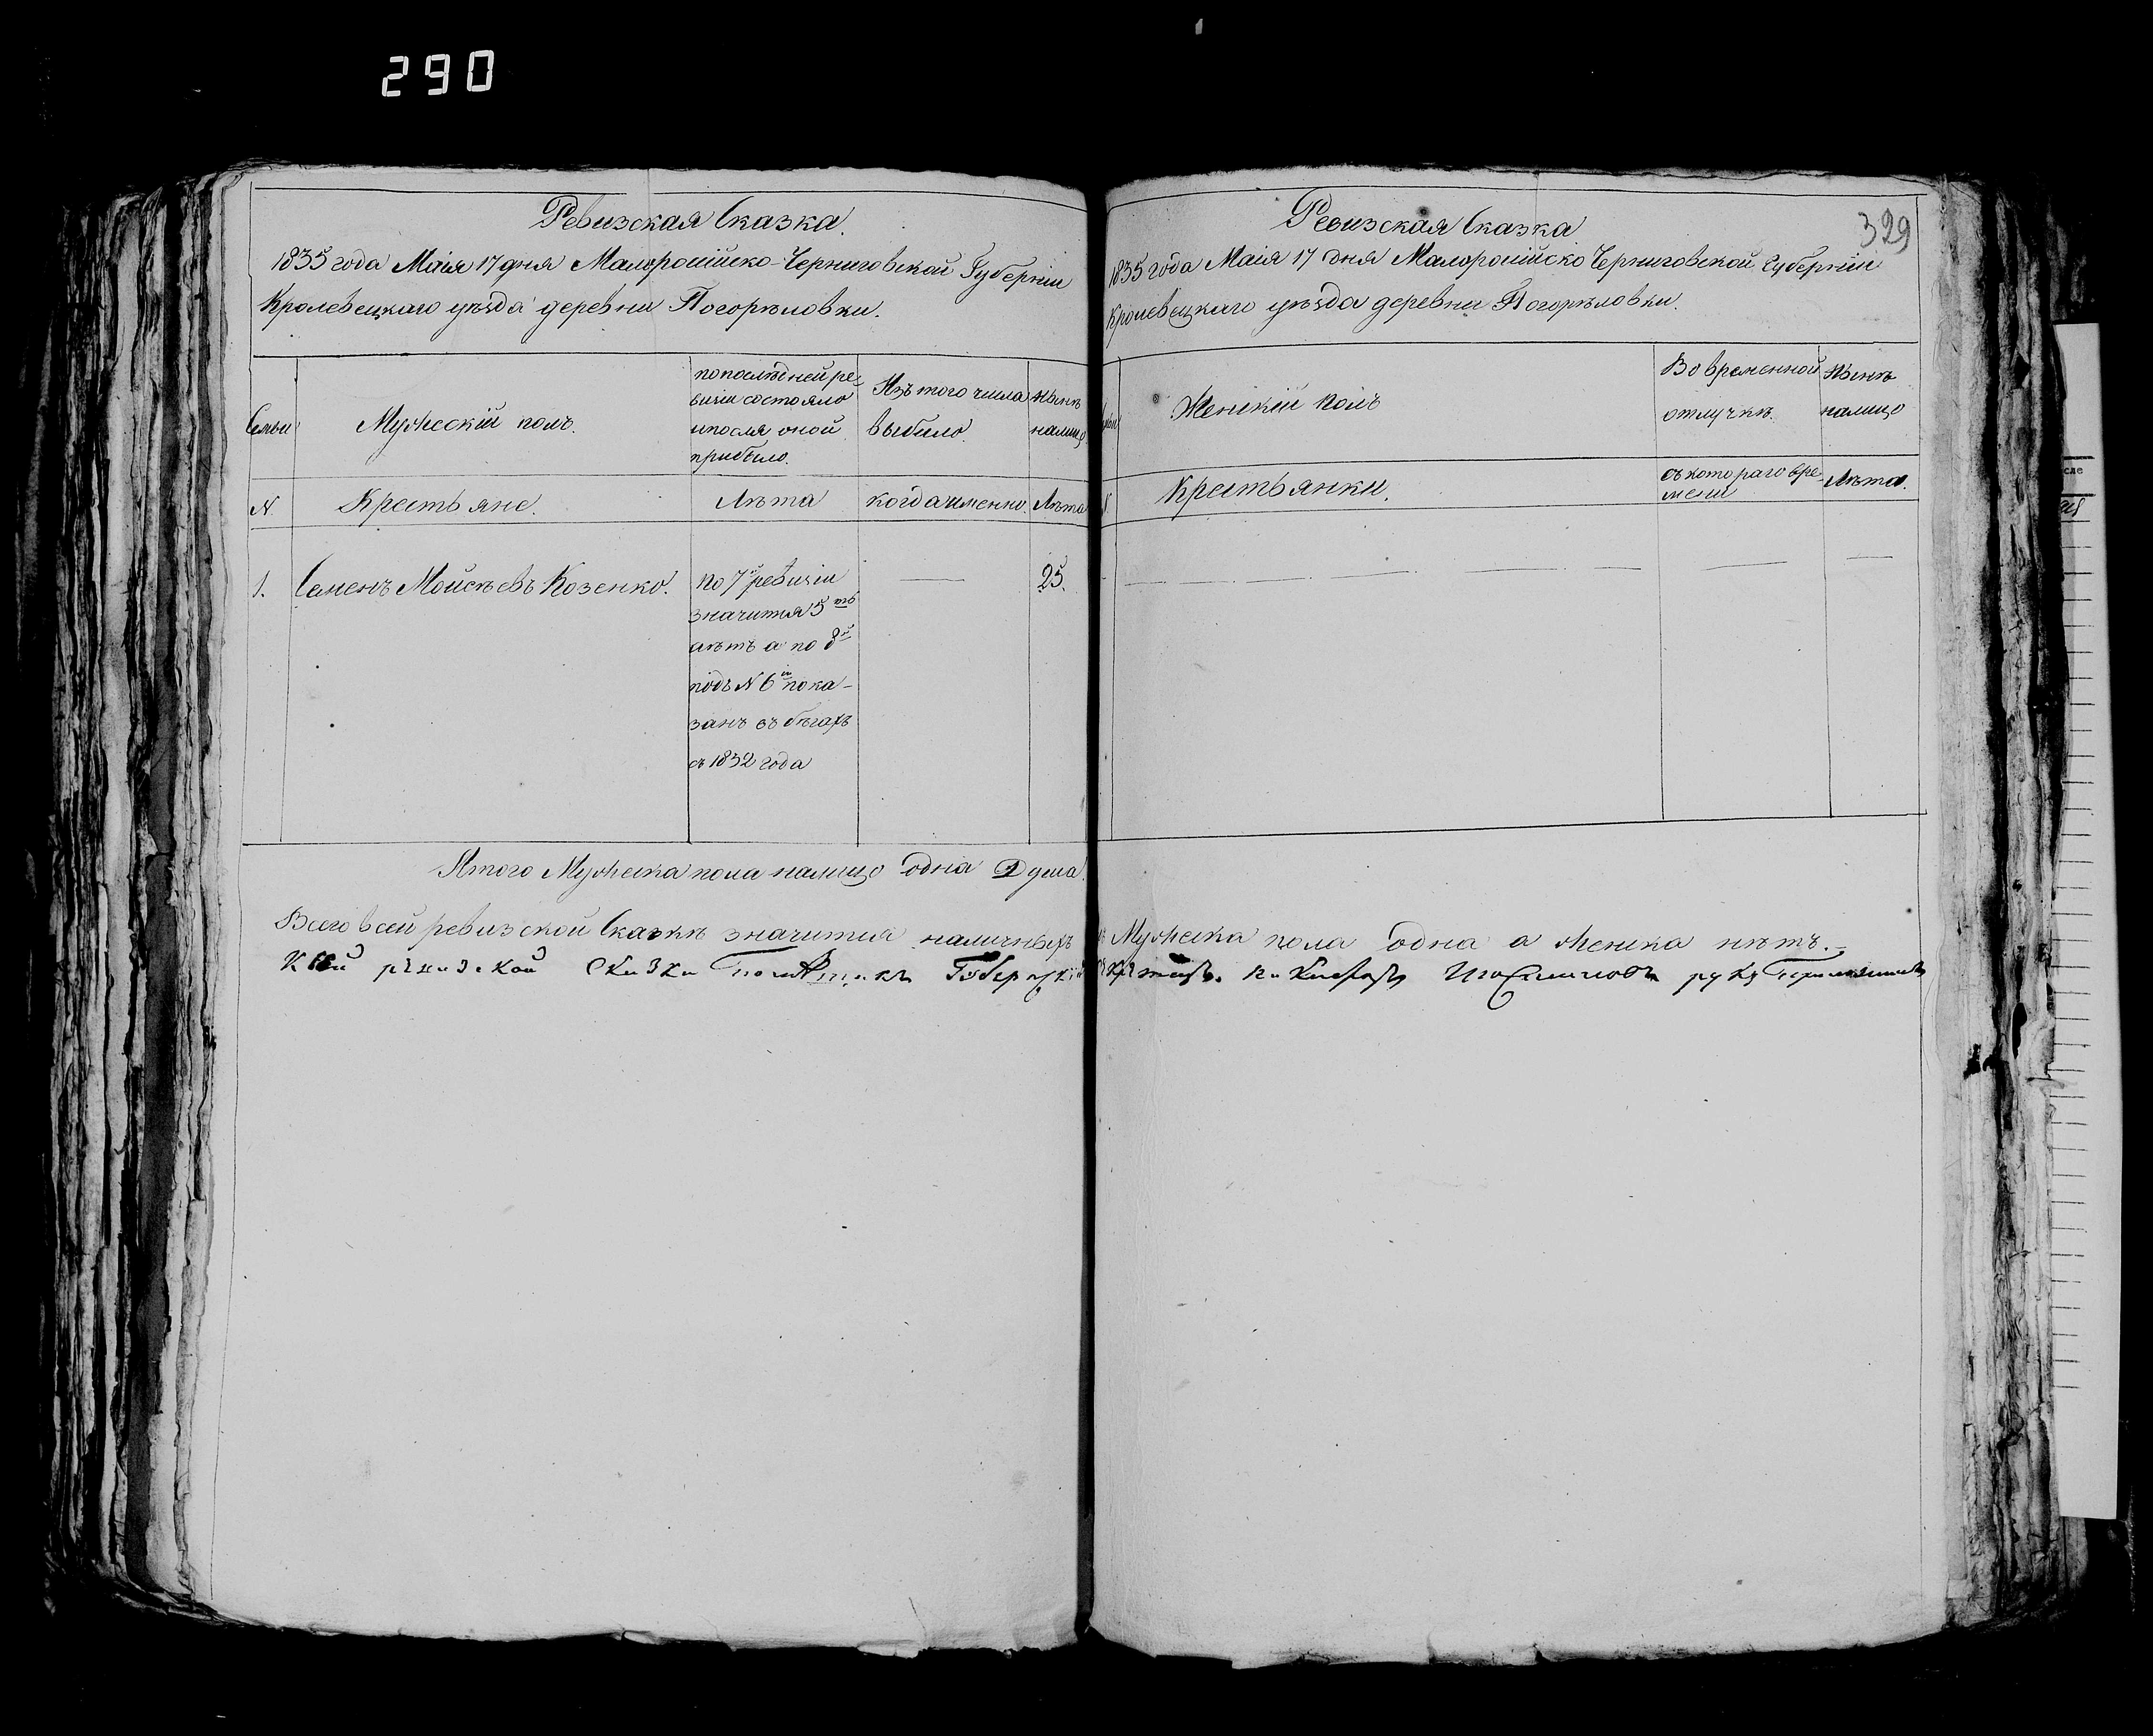 290
Ревизская Сказка.
1835 года Маія 17 дня Малоросійско-Черниговской Губерніи
Кролевецкаго уѣзда деревни Погорѣловки.
Семьи
Мужескій полъ.
по послѣдней ре-
визіи состояло
и после оной
прибыло.
Изъ того числа
выбыло.
Нынѣ
налицо
N.
Крестьяне.
Лѣта
когда именно.
Лѣта
1.
Семенъ Мойсѣевъ Козенко.
по 7й ревизіи
значится 5ть
лѣтъ а по 8й
подъ N 6м пока-
занъ въ бѣгахъ
съ 1832 года
25.
Итого Мужеска пола налицо одна 1 душа.
Ревизская Сказка
329
1835 года Маія 17 дня Малоросійско Черниговской Губерніи
Кролевецкаго уѣзда деревни Погорѣловки.
Женскій полъ
Во временной
отлучкѣ.
Нынѣ
налицо
Крестьянки.
съ котораго вре-
мени
Лѣта.
Всего в сей ревизской Сказкѣ значится наличныхъ Мужеска пола одна а женска нѣтъ.
К сей ръвизской Скизки руку